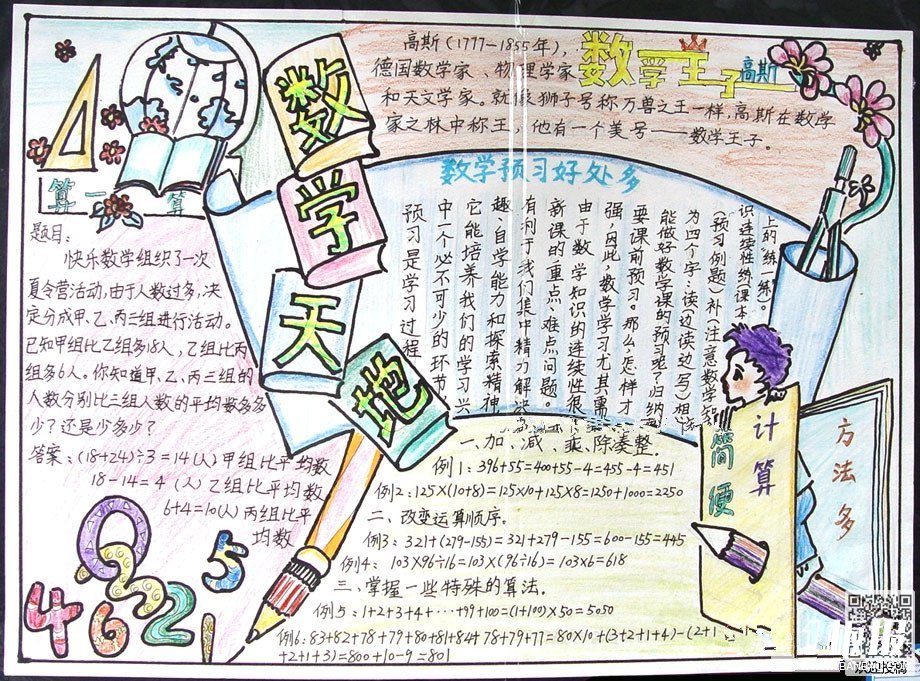 数学天地
高斯(1777-1855年),
德国数学家、物理学家
和天文学家。就像狮子号称万兽之王一样,高斯在数学
家之林中称王,他有一个美号——数学王子。
数学王子高斯
算一算
题目:
快乐数学组织了一次
夏令营活动,由于人数过多,决
定分成甲、乙、丙三组进行活动。
已知甲组比乙组多18人,乙组比丙
组多6人。你知道甲、乙、丙三组的
人数分别比三组人数的平均数多多
少?还是少多少?
答案:(18+24)÷3=14(人)甲组比平均数
18-14=4(人)乙组比平均数
6+4=10(人)丙组比平
均数
数学预习好处多
预习是学习过程
中一个必不可少的环节,
它能培养我们的学习兴
趣、自学能力和探索精神,
有利于我们集中精力解决
新课的重点、难点问题。
由于数学知识的连续性很
强,因此,数学学习尤其需
要课前预习。那么,怎样才
能做好数学课的预习呢?归纳
为四个字:读(边读边写)想
(预习例题)补(注意数学知
识连续性)练(课本
上的“练一练”)。
简便
计算
方法多
一、加、减、乘、除凑整。
例1:396+55=400+55-4=455-4=451
例2:125×(10+8)=125×10+125×8=1250+1000=2250
二、改变运算顺序。
例3:321+(279-155)=321+279-155=600-155=445
例4:103×96÷16=103×(96÷16)=103×6=618
三、掌握一些特殊的算法。
例5:1+2+3+4+…+99+100=(1+100)×50=5050
例6:83+82+78+79+80+81+84+78+79+77=80×10+(3+2+1+4)-(2+1
+2+1+3)=800+10-9=801
4 6 0 3 2 1 5
欢迎投稿